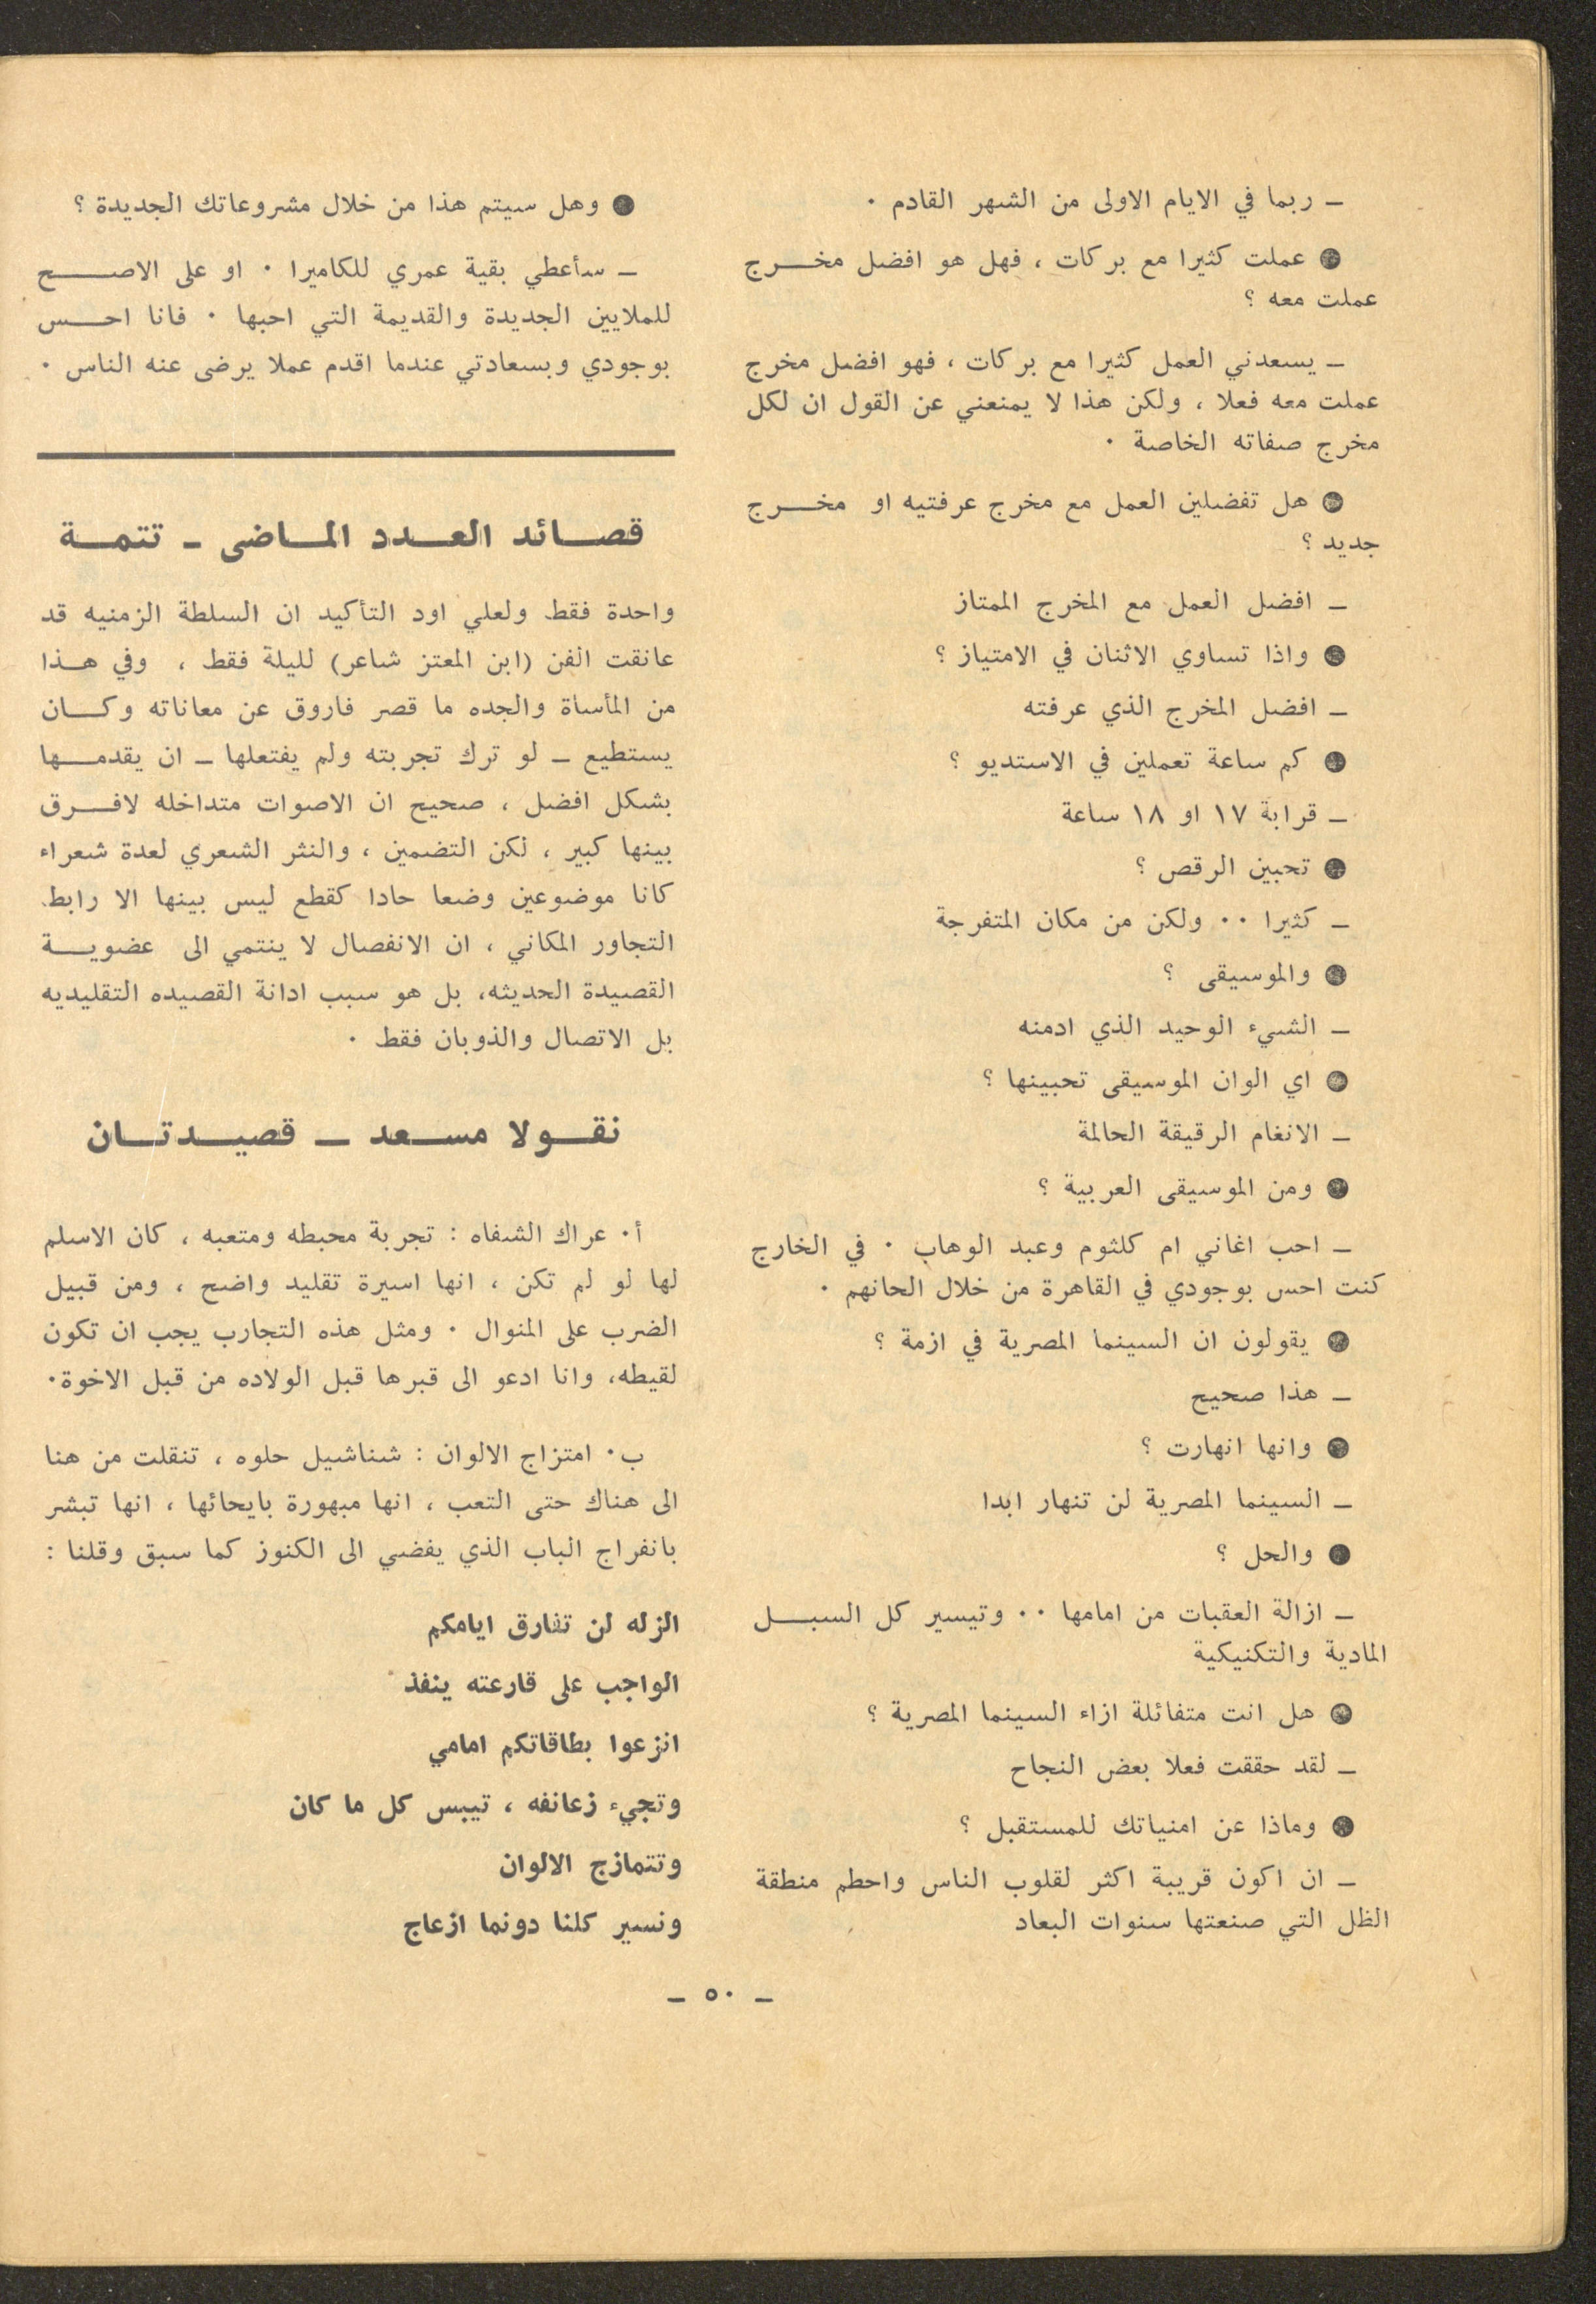 ـ ربما في الايام الاولى من الشهر القادم ٠
● عملت كثيرا مع بركات ، فهل هو افضل مخــرج
عملت معه ؟
ـ يسعدني العمل كثيرا مع بركات ، فهو افضل مخرج
عملت معه فعلا ، ولكن هذا لا يمنعني عن القول ان لكل
مخرج صفاته الخاصة ٠
● هل تفضلين العمل مع مخرج عرفتيه او مخــرج
جديد ؟
ـ افضل العمل مع المخرج الممتاز
● واذا تساوي الاثنان في الامتياز ؟
ـ افضل المخرج الذي عرفته
● كم ساعة تعملين في الاستديو ؟
ـ قرابة ١٧ او ١٨ ساعة
● تحبين الرقص ؟
ـ كثيرا ٠٠ ولكن من مكان المتفرجة
● والموسيقى ؟
ـ الشيء الوحيد الذي ادمنه
● اي الوان الموسيقى تحبينها ؟
ـ الانغام الرقيقة الحالمة
● ومن الموسيقى العربية ؟
ـ احب اغاني ام كلثوم وعبد الوهاب ٠ في الخارج
كنت احس بوجودي في القاهرة من خلال الحانهم ٠
● يقولون ان السينما المصرية في ازمة ؟
ـ هذا صحيح
● وانها انهارت ؟
ـ السينما المصرية لن تنهار ابدا
● والحل ؟
ـ ازالة العقبات من امامها ٠٠ وتيسير كل السبــل
المادية والتكنيكية
● هل انت متفائلة ازاء السينما المصرية ؟
ـ لقد حققت فعلا بعض النجاح
● وماذا عن امنياتك للمستقبل ؟
ـ ان اكون قريبة اكثر لقلوب الناس واحطم منطقة
الظل التي صنعتها سنوات البعاد
● وهل سيتم هذا من خلال مشروعاتك الجديدة ؟
ـ سأعطي بقية عمري للكاميرا ٠ او على الاصــح
للملايين الجديدة والقديمة التي احبها ٠ فانا احــس
بوجودي وبسعادتي عندما اقدم عملا يرضى عنه الناس ٠
قصــائد العــدد المــاضى ـ تتمــة
واحدة فقط ولعلي اود التأكيد ان السلطة الزمنيه قد
عانقت الفن (ابن المعتز شاعر) لليلة فقط ، وفي هــذا
من المأساة والجده ما قصر فاروق عن معاناته وكــان
يستطيع ـ لو ترك تجربته ولم يفتعلها ـ ان يقدمــها
بشكل افضل ، صحيح ان الاصوات متداخله لافــرق
بينها كبير ، لكن التضمين ، والنثر الشعري لعدة شعراء
كانا موضوعين وضعا حادا كقطع ليس بينها الا رابط
التجاور المكاني ، ان الانفصال لا ينتمي الى عضويــة
القصيدة الحديثه، بل هو سبب ادانة القصيده التقليديه
بل الاتصال والذوبان فقط ٠
نقــولا مســعد ـ قصيــدتــان
أ٠ عراك الشفاه : تجربة محبطه ومتعبه ، كان الاسلم
لها لو لم تكن ، انها اسيرة تقليد واضح ، ومن قبيل
الضرب على المنوال ٠ ومثل هذه التجارب يجب ان تكون
لقيطه، وانا ادعو الى قبرها قبل الولاده من قبل الاخوة٠
ب٠ امتزاج الالوان : شناشيل حلوه ، تنقلت من هنا
الى هناك حتى التعب ، انها مبهورة بايحائها ، انها تبشر
بانفراج الباب الذي يفضي الى الكنوز كما سبق وقلنا :
الزله لن تفارق ايامكم
الواجب على قارعته ينفذ
انزعوا بطاقاتكم امامي
وتجيء زعانفه ، تيبس كل ما كان
وتتمازج الالوان
ونسير كلنا دونما ازعاج
ـ ٥٠ ـ